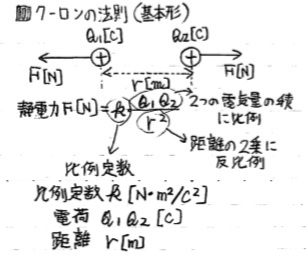 図 クーロンの法則 (基本形)
Q1[C] Q2[C]
F[N] F[N]
r[m]
静電力 F[N] = k Q1 Q2 / r² 2つの電気量の積に比例
距離の2乗に反比例
比例定数
比例定数 k [N・m²/C²]
電荷 Q1 Q2 [C]
距離 r[m]